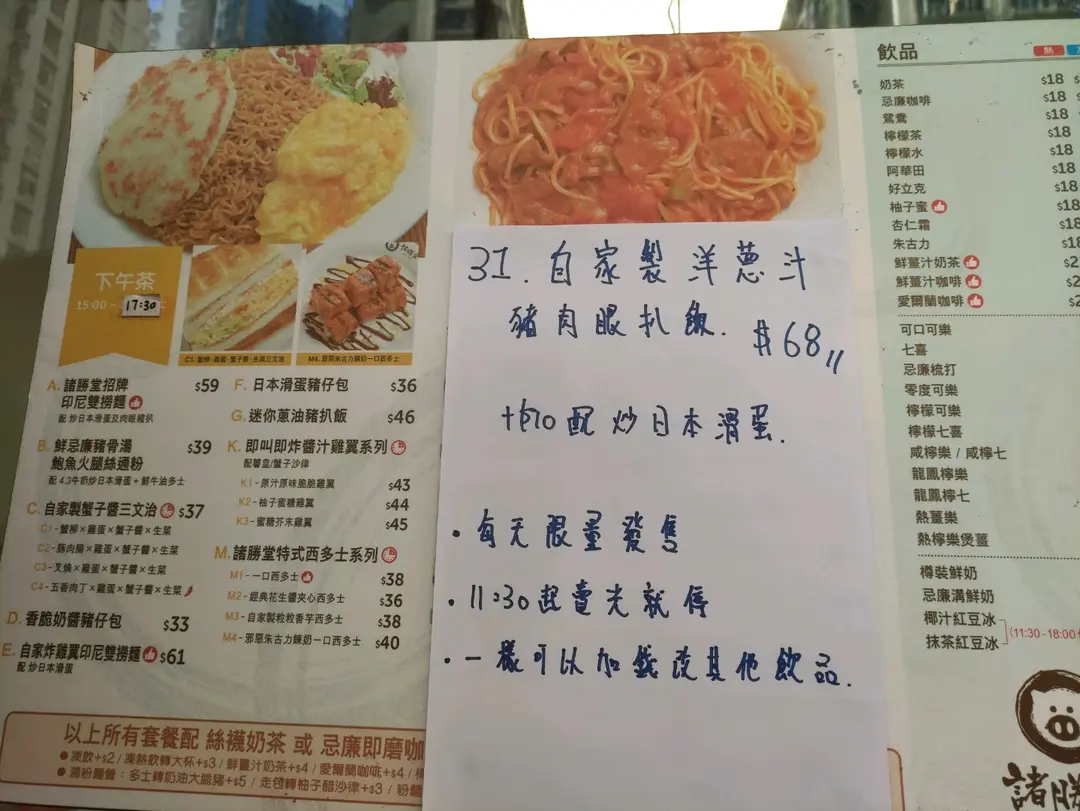 下午茶
15:00 -
17:30
C1. 蟹柳×雞蛋×蟹子醬×生菜三文治
M4. 邪惡朱古力煉奶一口西多士
A. 諸勝堂招牌 $59
印尼雙撈麵
配 炒日本滑蛋及肉眼豬扒
B. 鮮忌廉豬骨湯 $39
鮑魚火腿絲通粉
配 4.3牛奶炒日本滑蛋 + 鮮牛油多士
C. 自家製蟹子醬三文治 $37
C1 - 蟹柳×雞蛋×蟹子醬×生菜
C2 - 豚肉腸×雞蛋×蟹子醬×生菜
C3 - 叉燒×雞蛋×蟹子醬×生菜
C4 - 五香肉丁×雞蛋×蟹子醬×生菜
D. 香脆奶醬豬仔包 $33
E. 自家炸雞翼印尼雙撈麵 $61
配 炒日本滑蛋
F. 日本滑蛋豬仔包 $36
G. 迷你蔥油豬扒飯 $46
K. 即叫即炸醬汁雞翼系列
配薯皇/蟹子沙律
K1 - 原汁原味脆脆雞翼 $43
K2 - 柚子蜜糖雞翼 $44
K3 - 蜜糖芥末雞翼 $45
M. 諸勝堂特式西多士系列
M1 - 一口西多士 $38
M2 - 經典花生醬夾心西多士 $36
M3 - 自家製粒粒香芋西多士 $38
M4 - 邪惡朱古力煉奶一口西多士 $40
以上所有套餐配 絲襪奶茶 或 忌廉即磨咖
● 凍飲+$2 / 凍熱飲轉大杯+$3 / 鮮薑汁奶茶+$4 / 愛爾蘭咖啡+$4 /
● 湯粉麵餐：多士轉奶油大脆豬+$5 / 走包轉柚子醋沙律+$3 / 粉麵
31. 自家製洋蔥汁
豬肉眼扒飯. $68
+$10 配炒日本滑蛋.
• 每天限量發售
• 11:30起賣完就停
• 一樣可以加錢改其他飲品.
飲品
熱
奶茶 $18
忌廉咖啡 $18
鴛鴦 $18
檸檬茶 $18
檸檬水 $18
阿華田 $18
好立克 $18
柚子蜜 $18
杏仁霜 $18
朱古力 $18
鮮薑汁奶茶 $2
鮮薑汁咖啡 $2
愛爾蘭咖啡 $2
可口可樂
七喜
忌廉梳打
零度可樂
檸檬可樂
檸檬七喜
咸檸樂 / 咸檸七
龍鳳檸樂
龍鳳檸七
熱薑樂
熱檸樂煲薑
樽裝鮮奶
忌廉溝鮮奶
椰汁紅豆冰
抹茶紅豆冰
(11:30 - 18:00
諸勝